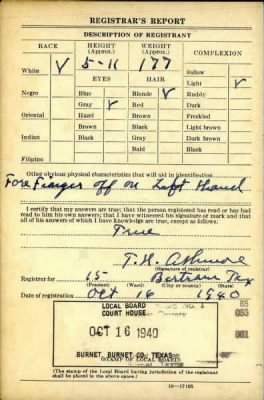 REGISTRAR'S REPORT
DESCRIPTION OF REGISTRANT
RACE HEIGHT (Approx.) WEIGHT (Approx.) COMPLEXION
White ✓ 5-11 177 Sallow
EYES HAIR Light ✓
Negro Blue Blonde ✓ Ruddy
Gray ✓ Red Dark
Oriental Hazel Brown Freckled
Brown Black Light brown
Indian Black Gray Dark brown
Bald Black
Filipino
Other obvious physical characteristics that will aid in identification
Fore Finger off on Left Hand
I certify that my answers are true; that the person registered has read or has had
read to him his own answers; that I have witnessed his signature or mark and that
all of his answers of which I have knowledge are true, except as follows:
True
(Signature of registrar)
Registrar for 15 Bertram Tex
(Precinct) (Ward) (City or county) (State)
Date of registration Oct 16 1940
LOCAL BOARD NO. 1
COURT HOUSE
OCT 16 1940
BURNET, BURNET CO., TEXAS
(STAMP OF LOCAL BOARD)
(The stamp of the Local Board having jurisdiction of the registrant
shall be placed in the above space.)
16—17105